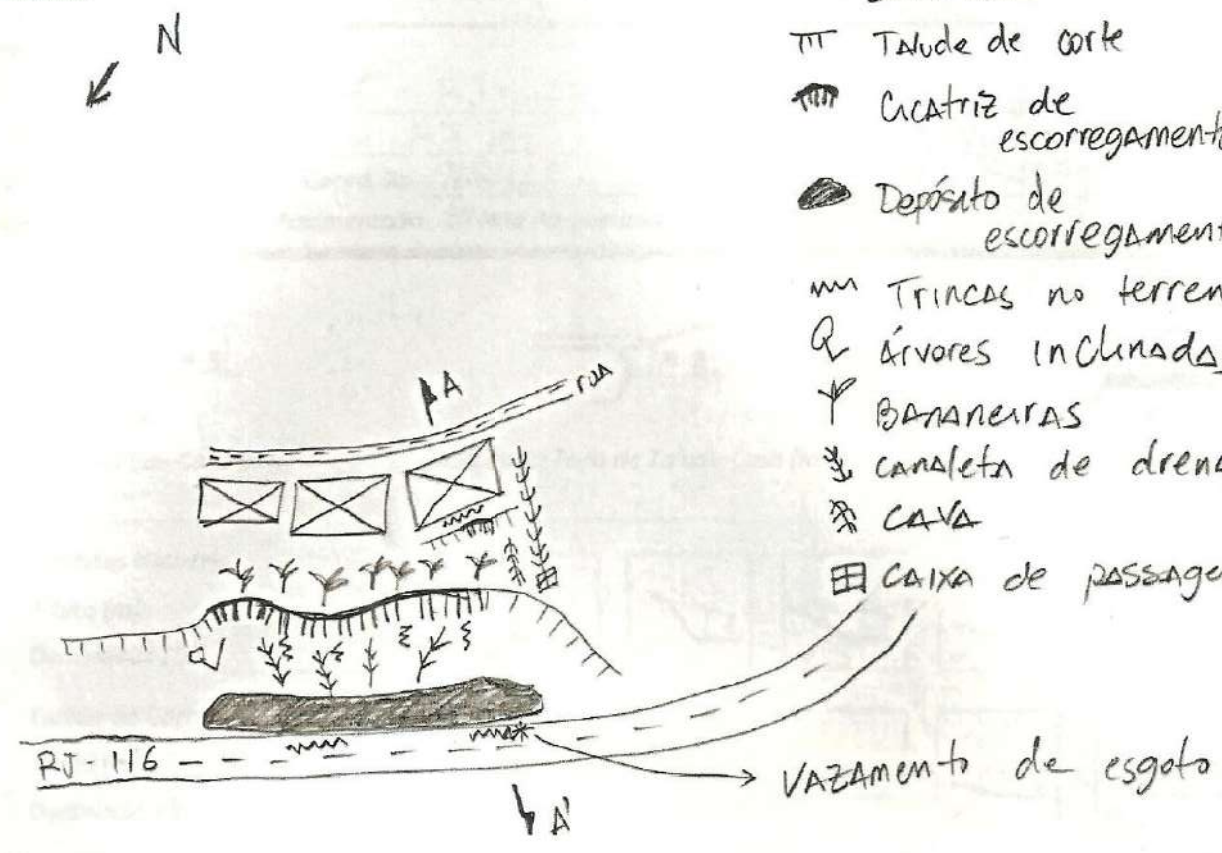 N
Talude de corte
Cicatriz de
escorregament
Depósito de
escorregament
Trincas no terren
Árvores inclinada
Bananeiras
canaleta de dren
CAVA
CAIXA de passage
A
rua
RJ-116
VAZAMENTO de esgoto
A'